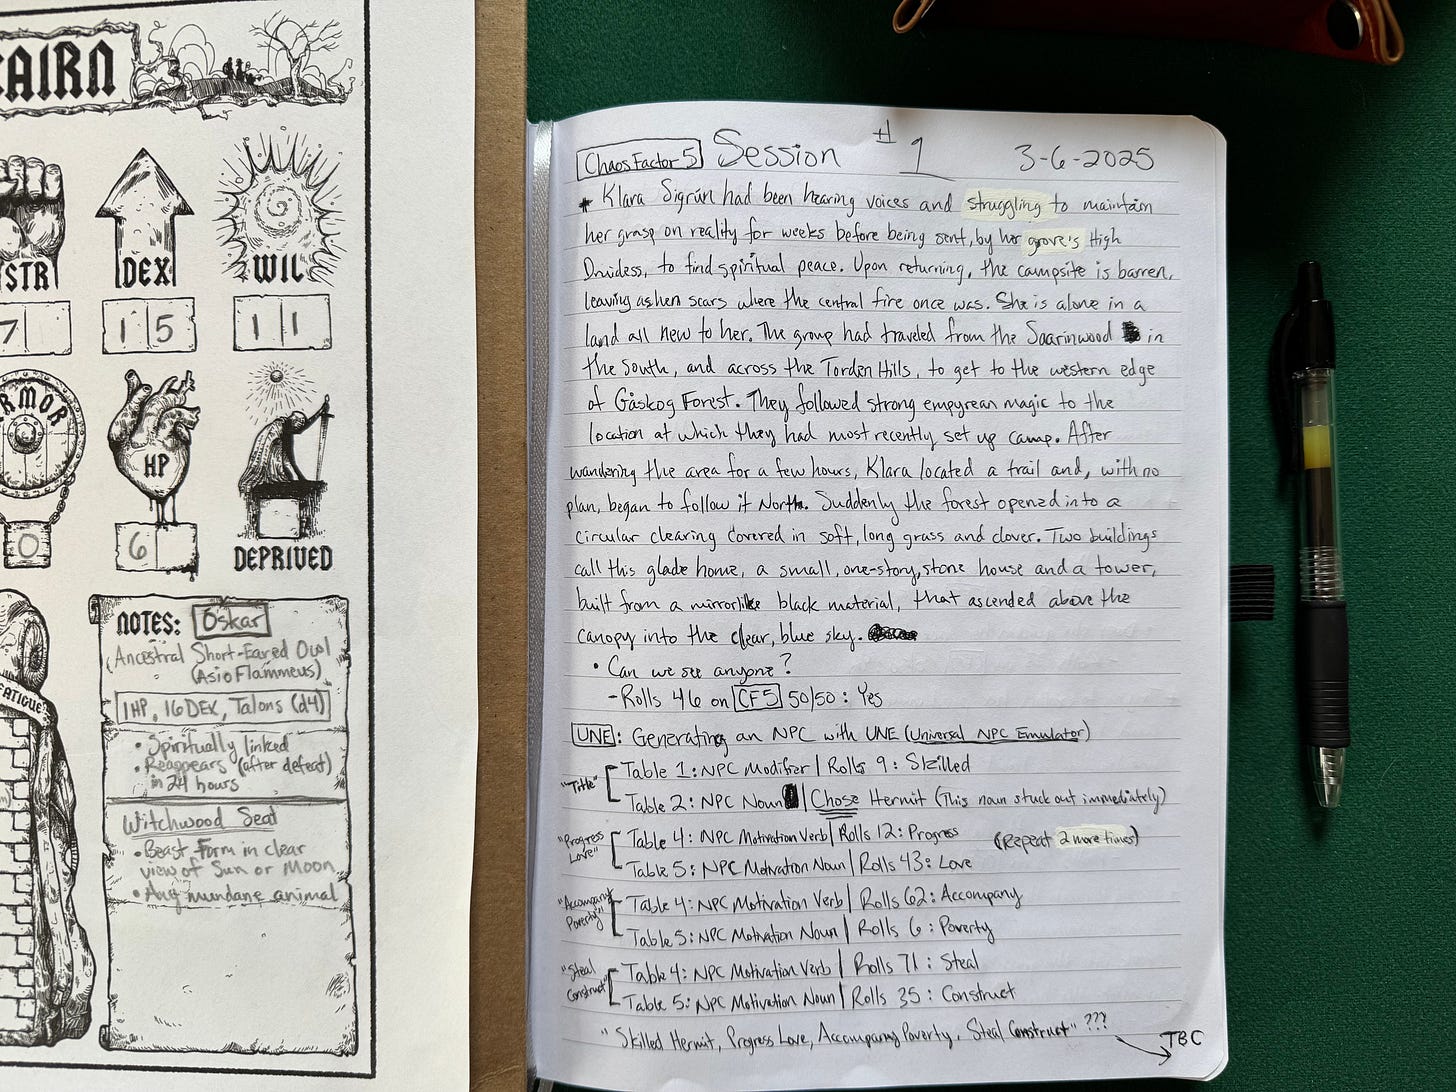 CAIRN
STR
DEX
WIL
7
15
11
ARMOR
HP
0
6
DEPRIVED
FATIGUE
NOTES: Oskar
Ancestral Short-Eared Owl
(Asio Flammeus)
1HP, 16DEX, Talons (d4)
• Spiritually linked
• Reappears (after defeat)
in 24 hours
Witchwood Seat
• Beast Form in clear
view of Sun or Moon
• Any mundane animal
Chaos Factor 5 Session #1 3-6-2025
* Klara Sigrún had been hearing voices and struggling to maintain
her grasp on reality for weeks before being sent, by her grove's High
Druidess, to find spiritual peace. Upon returning, the campsite is barren,
leaving ashen scars where the central fire once was. She is alone in a
land all new to her. The group had traveled from the Saarinwood in
the South, and across the Torden Hills, to get to the western edge
of Gåskog Forest. They followed strong empyrean magic to the
location at which they had most recently set up camp. After
wandering the area for a few hours, Klara located a trail and, with no
plan, began to follow it North. Suddenly the forest opened into a
circular clearing covered in soft, long grass and clover. Two buildings
call this glade home, a small, one-story, stone house and a tower,
built from a mirrorlike black material, that ascended above the
canopy into the clear, blue sky.
• Can we see anyone?
- Rolls 46 on CF5 50/50: Yes
UNE: Generating an NPC with UNE (Universal NPC Emulator)
"Title" Table 1: NPC Modifier | Rolls 9: Skilled
Table 2: NPC Noun | Chose Hermit (This noun stuck out immediately)
"Progress Love" Table 4: NPC Motivation Verb | Rolls 12: Progress (Repeat 2 more times)
Table 5: NPC Motivation Noun | Rolls 43: Love
"Accompany Poverty" Table 4: NPC Motivation Verb | Rolls 62: Accompany
Table 5: NPC Motivation Noun | Rolls 6: Poverty
"Steal Construct" Table 4: NPC Motivation Verb | Rolls 71: Steal
Table 5: NPC Motivation Noun | Rolls 35: Construct
"Skilled Hermit, Progress Love, Accompany Poverty, Steal Construct" ???
TBC